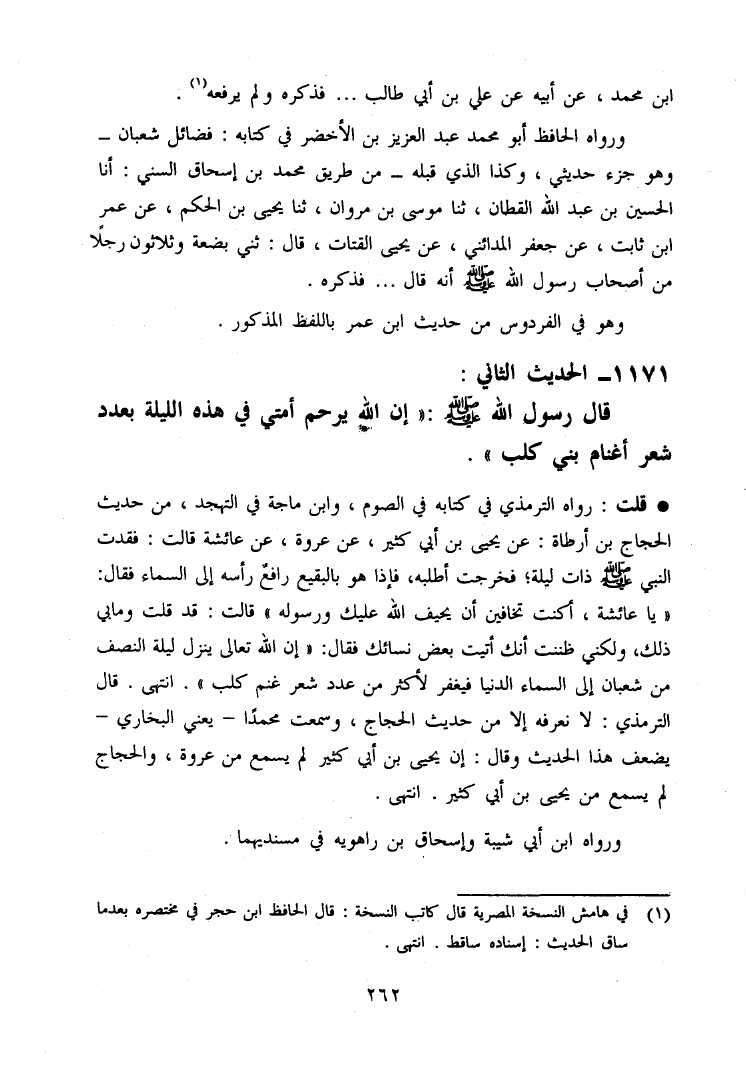 ابن محمد ، عن أبيه عن علي بن أبي طالب ... فذكره ولم يرفعه(١) .
ورواه الحافظ أبو محمد عبد العزيز بن الأخضر في كتابه : فضائل شعبان ــ
وهو جزء حديثي ، وكذا الذي قبله ــ من طريق محمد بن إسحاق السني : أنا
الحسين بن عبد الله القطان ، ثنا موسى بن مروان ، ثنا يحيى بن الحكم ، عن عمر
ابن ثابت ، عن جعفر المدائني ، عن يحيى القتات ، قال : ثني بضعة وثلاثون رجلًا
من أصحاب رسول الله ﷺ أنه قال ... فذكره .
وهو في الفردوس من حديث ابن عمر باللفظ المذكور .
١١٧١ــ الحديث الثاني :
قال رسول الله ﷺ :« إن الله يرحم أمتي في هذه الليلة بعدد
شعر أغنام بني كلب » .
● قلت : رواه الترمذي في كتابه في الصوم ، وابن ماجة في التهجد ، من حديث
الحجاج بن أرطاة : عن يحيى بن أبي كثير ، عن عروة ، عن عائشة قالت : فقدت
النبي ﷺ ذات ليلة؛ فخرجت أطلبه، فإذا هو بالبقيع رافعٌ رأسه إلى السماء فقال:
« يا عائشة ، أكنت تخافين أن يحيف الله عليك ورسوله » قالت : قد قلت ومابي
ذلك، ولكني ظننت أنك أتيت بعض نسائك فقال: « إن الله تعالى ينزل ليلة النصف
من شعبان إلى السماء الدنيا فيغفر لأكثر من عدد شعر غنم كلب » . انتهى . قال
الترمذي : لا نعرفه إلا من حديث الحجاج ، وسمعت محمدًا – يعني البخاري –
يضعف هذا الحديث وقال : إن يحيى بن أبي كثير لم يسمع من عروة ، والحجاج
لم يسمع من يحيى بن أبي كثير . انتهى .
ورواه ابن أبي شيبة وإسحاق بن راهويه في مسنديهما .
(١) في هامش النسخة المصرية قال كاتب النسخة : قال الحافظ ابن حجر في مختصره بعدما
ساق الحديث : إسناده ساقط . انتهى .
٢٦٢